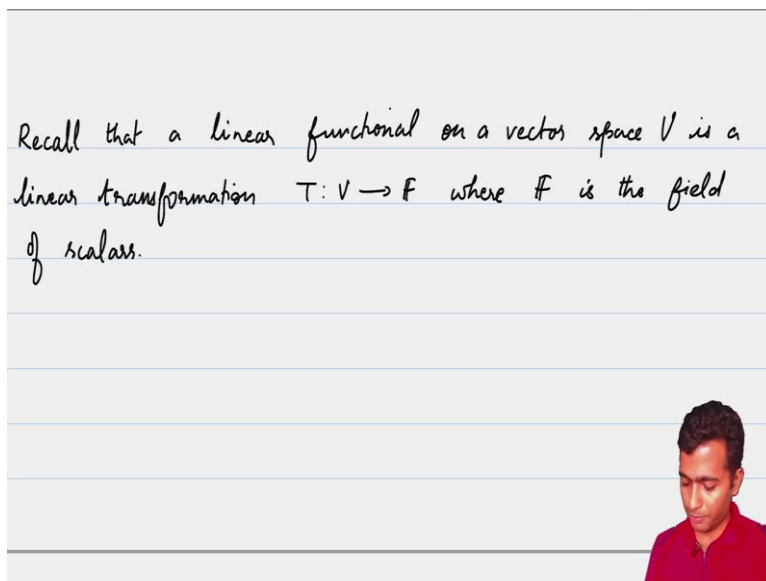 Recall that a linear functional on a vector space V is a
linear transformation T: V → 𝔽 where 𝔽 is the field
of scalars.